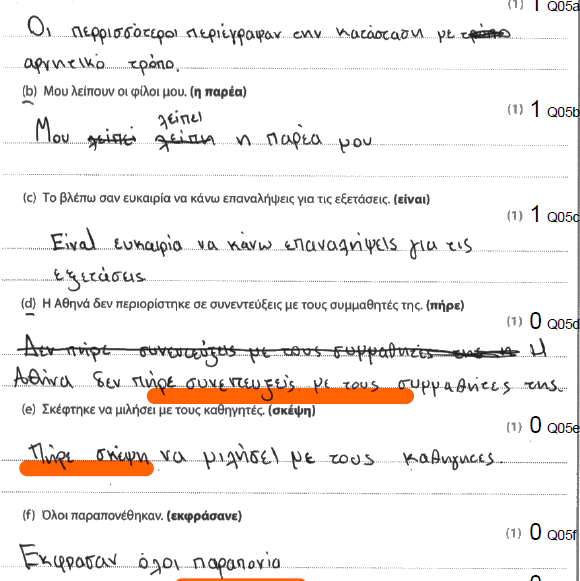 (1) 1 Q05a
Οι περρισσότεροι περιέγραψαν την κατάσταση με τρόπο
αρνητικό τρόπο.
(b) Μου λείπουν οι φίλοι μου. (η παρέα)
(1) 1 Q05b
λείπει
Μου λειπεί λείπη η παρέα μου
(c) Το βλέπω σαν ευκαιρία να κάνω επαναλήψεις για τις εξετάσεις. (είναι)
(1) 1 Q05c
Είναι ευκαιρία να κάνω επαναλήψεις για τις
εξετάσεις
(d) Η Αθηνά δεν περιορίστηκε σε συνεντεύξεις με τους συμμαθητές της. (πήρε)
(1) 0 Q05d
Δεν πήρε συνεντεύξεις με τους συμμαθητές της η Η
Αθήνα δεν πήρε συνεντευξείς με τους συμμαθητες της.
(e) Σκέφτηκε να μιλήσει με τους καθηγητές. (σκέψη)
(1) 0 Q05e
Πήρε σκέψη να μιλήσει με τους καθηγητες.
(f) Όλοι παραπονέθηκαν. (εκφράσανε)
(1) 0 Q05f
Εκφρασαν όλοι παραπονία